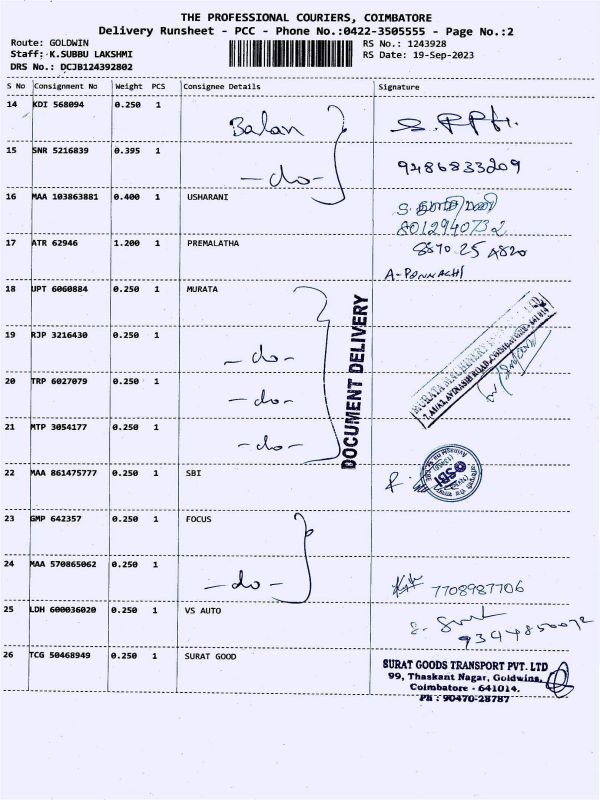 THE PROFESSIONAL COURIERS, COIMBATORE
Delivery Runsheet - PCC - Phone No.:0422-3505555 - Page No.:2
Route: GOLDWIN
RS No.: 1243928
Staff: K.SUBBU LAKSHMI
RS Date: 19-Sep-2023
DRS No.: DCJB124392802
S No Consignment No Weight PCS Consignee Details Signature
14 KDI 568094 0.250 1 Balan
15 SNR 5216839 0.395 1 -do- 9486833209
16 MAA 103863881 0.400 1 USHARANI
8012940732
17 ATR 62946 1.200 1 PREMALATHA
A-PONNACHI
18 UPT 6060884 0.250 1 MURATA
DOCUMENT DELIVERY
19 RJP 3216430 0.250 1 -do-
20 TRP 6027079 0.250 1 -do-
21 MTP 3054177 0.250 1 -do-
22 MAA 861475777 0.250 1 SBI SBI
23 GMP 642357 0.250 1 FOCUS
24 MAA 570865062 0.250 1 -do- 7708987706
25 LDH 600036020 0.250 1 VS AUTO
26 TCG 50468949 0.250 1 SURAT GOOD
SURAT GOODS TRANSPORT PVT. LTD
99, Thaskant Nagar, Goldwins,
Coimbatore - 641014.
Ph : 90470-28787